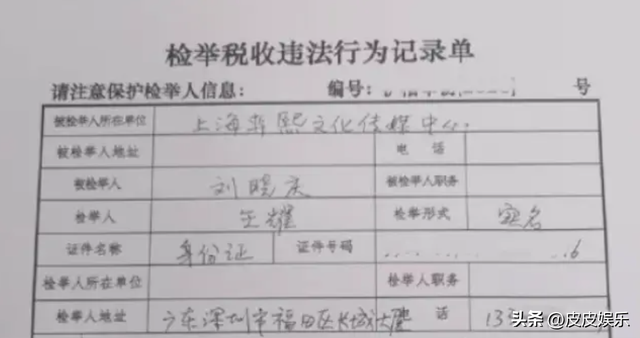 检举税收违法行为记录单
请注意保护检举人信息： 编号： 号
被检举人所在单位 上海 熙文化传媒中心
被检举人地址 电 话
被检举人 刘晓庆 被检举人职务
检举人 王耀 检举形式 实名
证件名称 身份证 证件号码 6
检举人所在单位 检举人职务
检举人地址 广东深圳市福田区长城大厦 话 13
头条 @皮皮娱乐